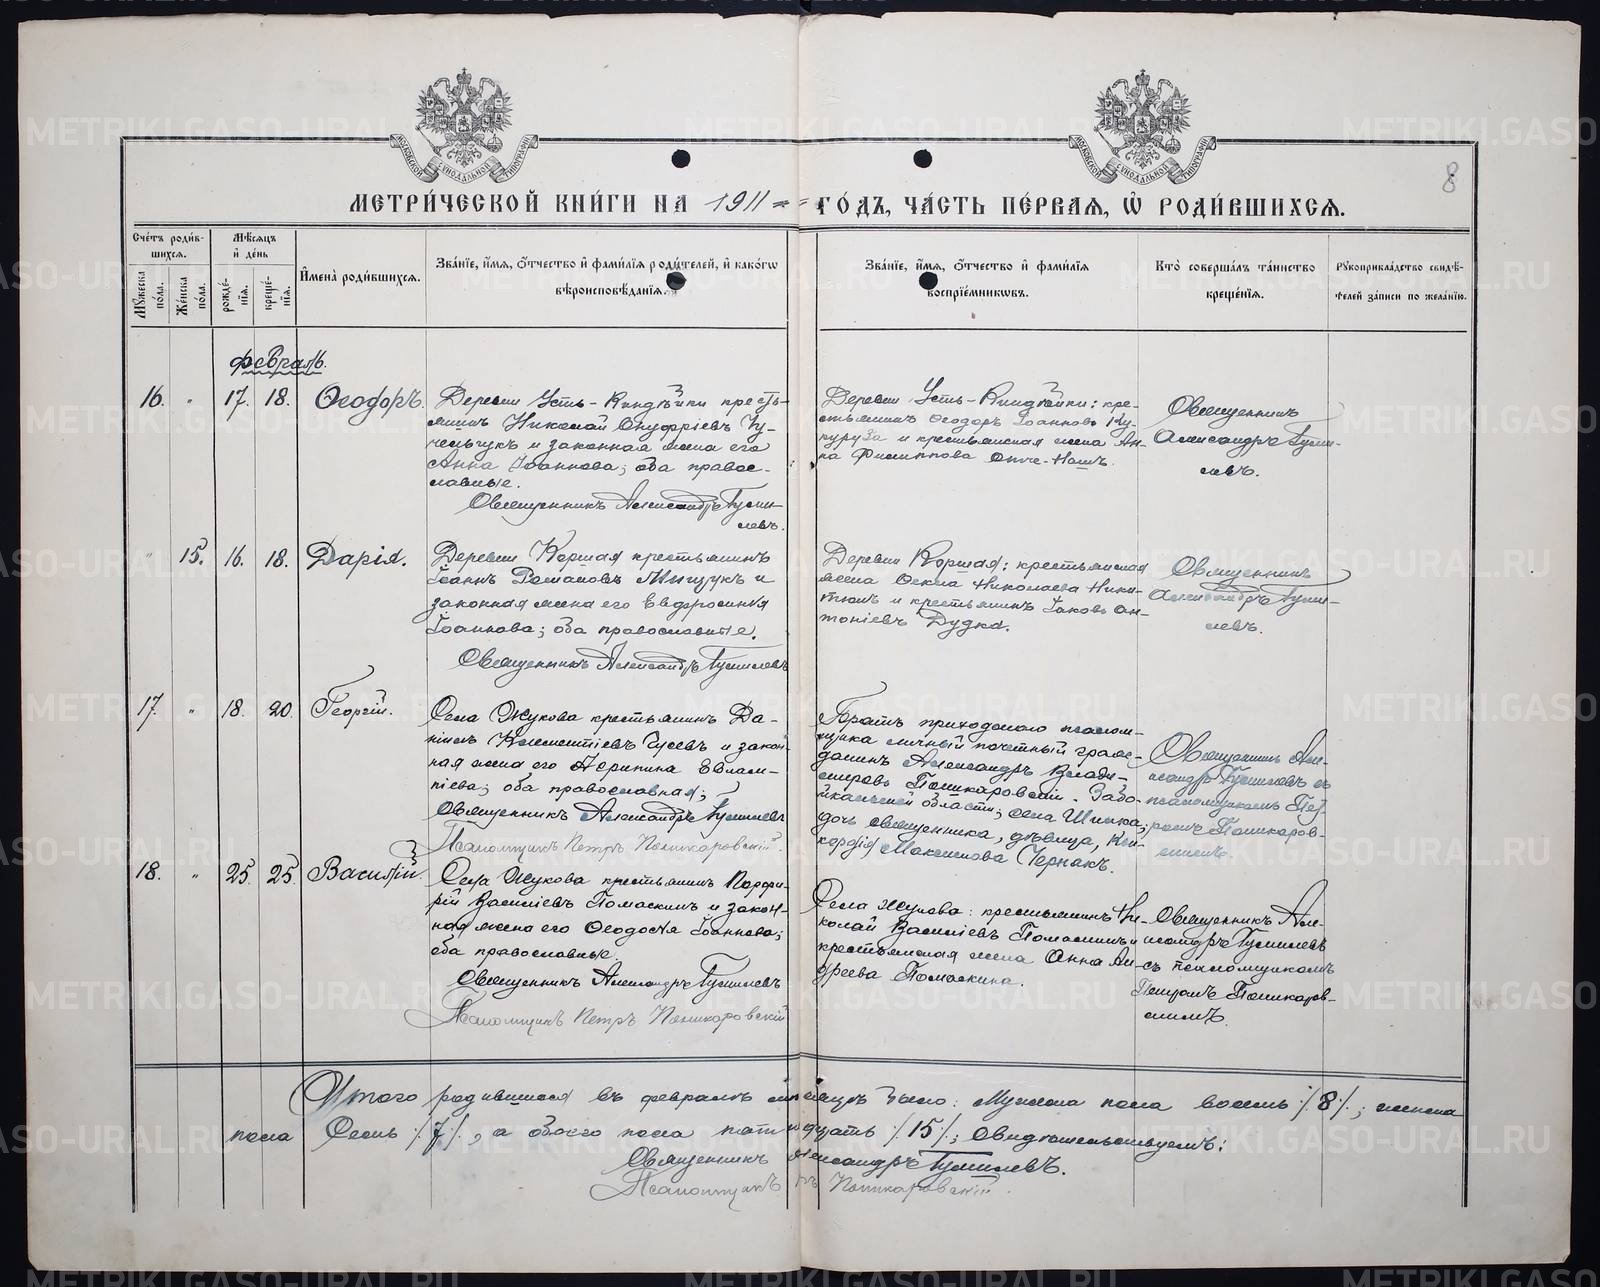 8
МЕТРИ́ЧЕСКОЙ КНИ́ГИ НА 1911 ГО́ДЪ, ЧА́СТЬ ПЕ́РВАЯ, Ѡ РОДИ́ВШИХСЯ.
Сче́тъ роди́вшихся.
Му́жеска по́ла.
Же́нска по́ла.
Мѣ́сяцъ и де́нь
рожде́нія.
креще́нія.
Имена̀ роди́вшихся.
Зва́ніе, и́мя, о́тчество и фами́лія роди́телей, и како́гω вѣроисповѣ́данія.
Зва́ніе, и́мя, о́тчество и фами́лія воспріе́мниковъ.
Кто̀ соверша́лъ та́инство креще́нія.
Рукоприкла́дство свидѣ́телей за́писи по жела́нію.
Февраль.
16. " 17. 18. Ѳеодоръ.
Деревни Усть-
кресть-
янинъ Николай Онуфріевъ
и законная жена его
Анна Іоаннова; оба правос-
лавные.
Священникъ Александръ
Деревни Усть- : кре-
стьянинъ Ѳеодоръ Іоанновъ Ку-
куруза и крестьянская жена Ан-
на Филиппова Отче-Нашъ.
Священникъ
Александръ
" 15. 16. 18. Дарія.
Деревни Коршая крестьянинъ
Іоаннъ Романовъ Мищукъ и
законная жена его Евфросинія
Іоаннова; оба православные.
Священникъ Александръ
Деревни Коршая: крестьянская
жена Ѳекла Николаева Ники-
тюкъ и крестьянинъ Іаковъ Ан-
тоніевъ Дудка.
Священникъ
Александръ
17. " 18. 20. Георгій.
Села Жукова крестьянинъ Да-
ніилъ Климентіевъ Гусевъ и закон-
ная жена его Агрипина Евлам-
піева; оба православная;
Священникъ Александръ
Псаломщикъ Петръ Поникаровскій.
Братъ приходскаго псалом-
щика личный почетный граж-
данинъ Александръ Влади-
міровъ Поникаровскій. Забай-
кальской области; села Шилка;
дочь священника, дѣвица, Кон-
кордія Максимова Чернакъ.
Священникъ Але-
ксандръ съ
псаломщикомъ Пет-
ромъ Поникаров-
скимъ.
18. " 25. 25. Василій.
Села Жукова крестьянинъ Порфи-
рій Васильевъ Помаскинъ и закон-
ная жена его Ѳеодосія Іоаннова;
оба православные.
Священникъ Александръ
Псаломщикъ Петръ Поникаровскій
Села Жукова: крестьянинъ Ни-
колай Васильевъ Помаскинъ и
крестьянская жена Анна Ан-
дреева Помаскина.
Священникъ Але-
ксандръ
съ псаломщикомъ
Петромъ Поникаров-
скимъ.
Итого родившихся въ февралѣ мѣсяцѣ было: Мужска пола восемь /8/; женска
пола Семь /7/, а обоего пола пятнадцать /15/; свидѣтельствуемъ:
Священникъ Александръ
Псаломщикъ Поникаровскій.
METRIKI.GASO-URAL.RU